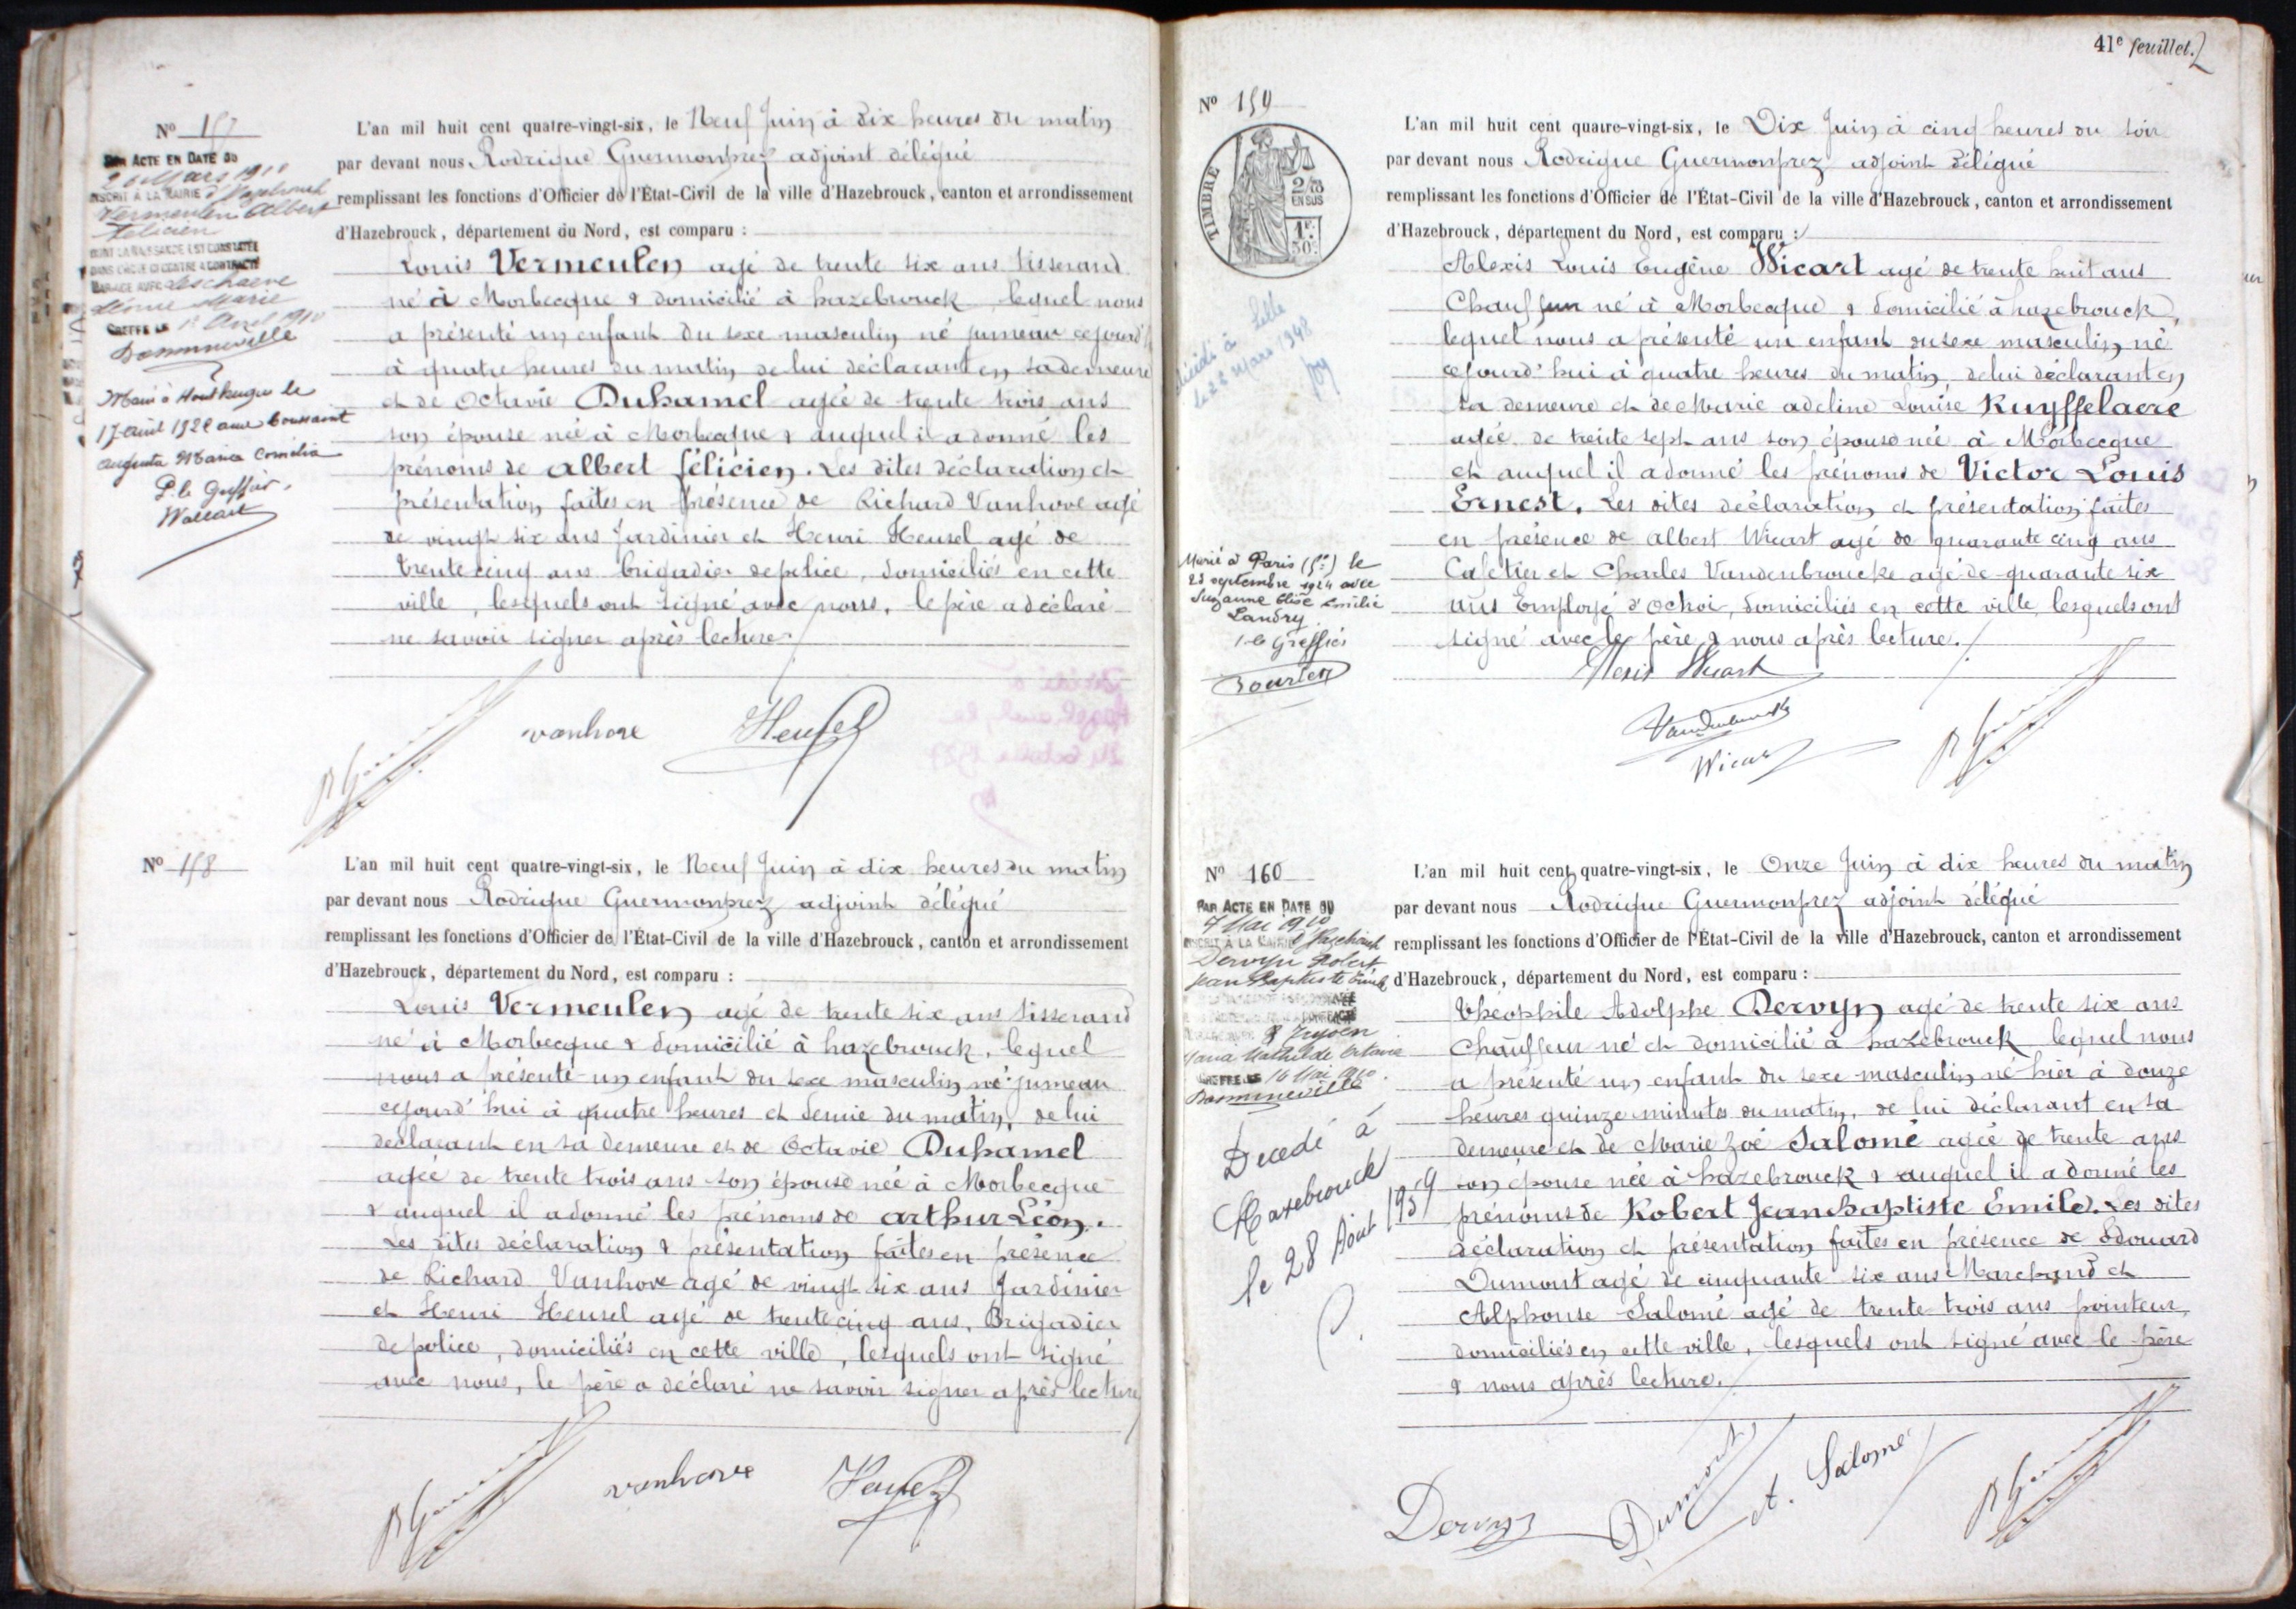 N° 157
PAR ACTE EN DATE DU
26 Mars 1910
INSCRIT À LA MAIRIE d'Hazebrouck
Vermeulen Albert
Félicien
DONT LA NAISSANCE EST CONSTATÉE
DANS L'ACTE CI CONTRE A CONTRACTÉ
MARIAGE AVEC
Marie
GREFFE LE 1er Avril 1910
Marié à Houtkerque le
17 avril 1928 avec Boussant
Augusta Maria Cornélia
P. le Greffier,
L'an mil huit cent quatre-vingt-six, le Neuf Juin à dix heures du matin
par devant nous Rodrigue Guermonprez adjoint délégué
remplissant les fonctions d'Officier de l'État-Civil de la ville d'Hazebrouck, canton et arrondissement
d'Hazebrouck, département du Nord, est comparu :
Louis Vermeulen agé de trente six ans tisserand
né à Morbecque & domicilié à hazebrouck, lequel nous
a présenté un enfant du sexe masculin né jumeau cejourd'h
à quatre heures du matin de lui déclarant en sa demeure
et de Octavie Duhamel agée de trente trois ans
son épouse née à Morbecque & auquel il a donné les
prénoms de Albert félicien. Les dites déclaration et
présentation faites en présence de Richard Vanhove agé
de vingt six ans Jardinier et Henri Heusel agé de
trente cinq ans brigadier de police, domiciliés en cette
ville, lesquels ont signé avec nous, le père a déclaré
ne savoir signer après lecture.
vanhove Heusel
N° 158
L'an mil huit cent quatre-vingt-six, le Neuf Juin à dix heures du matin
par devant nous Rodrigue Guermonprez adjoint délégué
remplissant les fonctions d'Officier de l'État-Civil de la ville d'Hazebrouck, canton et arrondissement
d'Hazebrouck, département du Nord, est comparu :
Louis Vermeulen agé de trente six ans tisserand
né à Morbecque & domicilié à hazebrouck, lequel
nous a présenté un enfant du sexe masculin né jumeau
cejourd'hui à quatre heures et demie du matin, de lui
déclarant en sa demeure et de Octavie Duhamel
agée de trente trois ans son épouse née à Morbecque
& auquel il a donné les prénoms de arthur Léon.
Les dites déclaration & présentation faites en présence
de Richard Vanhove agé de vingt six ans Jardinier
et Henri Heusel agé de trente cinq ans, Brigadier
de police, domiciliés en cette ville, lesquels ont signé
avec nous, le père a déclaré ne savoir signer après lecture
vanhove Heusel
41e feuillet. 2
N° 159
TIMBRE
2/10 EN SUS
1F. 50c.
décédé à Lille
le 28 Mars 1948
Marié à Paris (5e) le
23 septembre 1924 avec
Suzanne Elise Emilie
Landry.
P. le Greffier
L'an mil huit cent quatre-vingt-six, le Dix Juin à cinq heures du soir
par devant nous Rodrigue Guermonprez adjoint délégué
remplissant les fonctions d'Officier de l'État-Civil de la ville d'Hazebrouck, canton et arrondissement
d'Hazebrouck, département du Nord, est comparu :
Alexis Louis Eugène Wicart agé de trente huit ans
Chauffeur né à Morbecque & domicilié à hazebrouck,
lequel nous a présenté un enfant du sexe masculin, né
cejourd'hui à quatre heures du matin, de lui déclarant en
sa demeure et de Marie adeline Louise Ruysselaere
agée de trente sept ans son épouse née à Morbecque
et auquel il a donné les prénoms de Victor Louis
Ernest. Les dites déclaration et présentation faites
en présence de Albert Wicart agé de quarante cinq ans
Cafetier et Charles Vandenbroucke agé de quarante six
ans Employé d'octroi, domiciliés en cette ville, lesquels ont
signé avec le père & nous après lecture.
Alexis Wicart
Vandenbroucke
Wicart
N° 160
PAR ACTE EN DATE DU
7 Mai 1910
INSCRIT À LA MAIRIE d'Hazebrouck
Dervyn Robert
Jean Baptiste Emile
Maria Mathilde Octavie
GREFFE LE 16 Mai 1910.
Décédé à
Hazebrouck
le 28 Août 1959
L'an mil huit cent quatre-vingt-six, le Onze Juin à dix heures du matin
par devant nous Rodrigue Guermonprez adjoint délégué
remplissant les fonctions d'Officier de l'État-Civil de la ville d'Hazebrouck, canton et arrondissement
d'Hazebrouck, département du Nord, est comparu :
Théophile Adolphe Dervyn agé de trente six ans
Chauffeur né et domicilié à hazebrouck lequel nous
a présenté un enfant du sexe masculin né hier à douze
heures quinze minutes du matin, de lui déclarant en sa
demeure et de Marie Zoé Salomé agée de trente ans
son épouse née à hazebrouck & auquel il a donné les
prénoms de Robert Jean baptiste Emile. Les dites
déclaration et présentation faites en présence de Edouard
Dumont agé de cinquante six ans Marchand et
Alphonse Salomé agé de trente trois ans pointeur,
domiciliés en cette ville, lesquels ont signé avec le père
& nous après lecture.
Dervyn Dumont A. Salomé